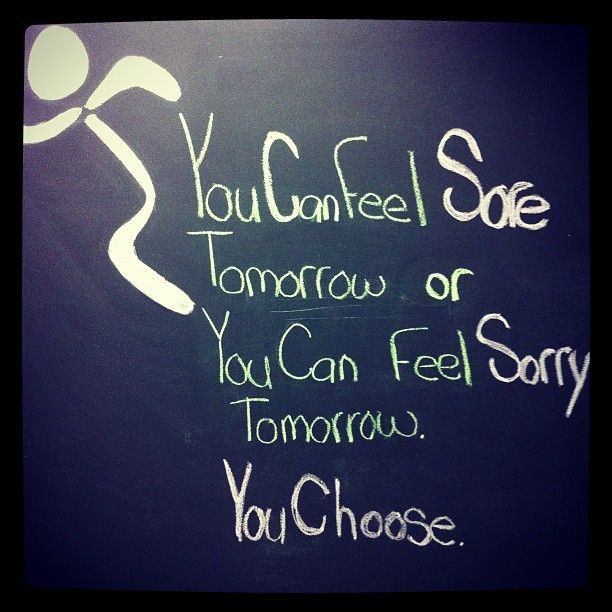 You Can Feel Sore
Tomorrow or
You Can Feel Sorry
Tomorrow.
You Choose.